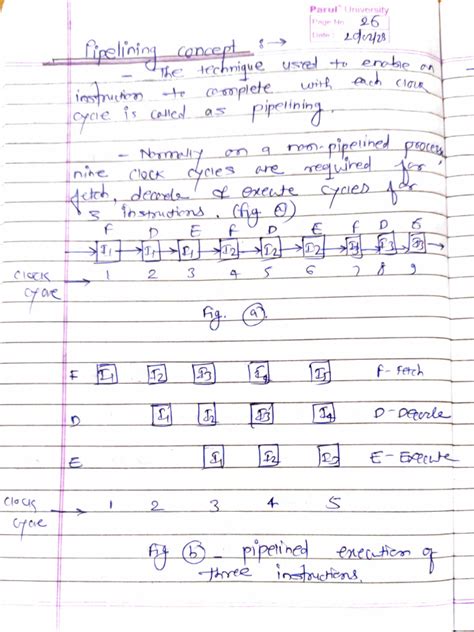 Parul University
Page No. 26
Date:
Pipelining concept :→
- The technique used to enable an
instruction to complete with each clock
cycle is called as pipelining.
- Normally on a non-pipelined process
nine clock cycles are required for
fetch, decode & execute cycles for
3 instructions. (fig a)
F D E F D E F D E
I1 I1 I1 I2 I2 I2 I3 I3 I3
clock cycle 1 2 3 4 5 6 7 8 9
Fig. a.
F I1 I2 I3 I4 I5 F- Fetch
D I1 I2 I3 I4 D-Decode
E I1 I2 I3 E-Execute
clock cycle 1 2 3 4 5
Fig b - pipelined execution of
three instructions.